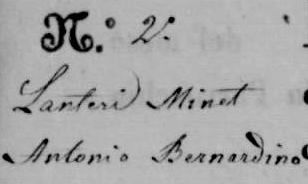 N.º 2.
Lanteri Minet
Antonio Bernardino